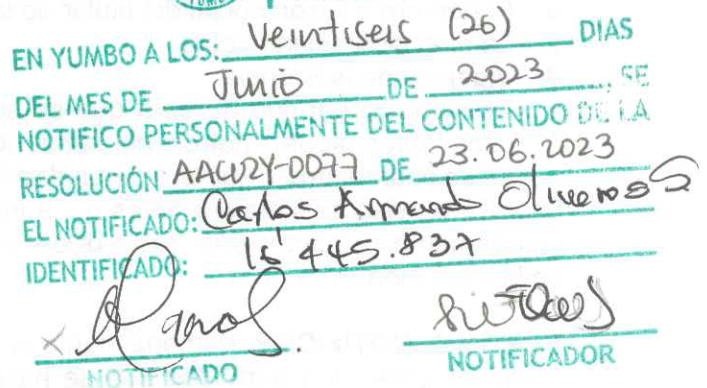 EN YUMBO A LOS: Veintiseis (26) DIAS
DEL MES DE Junio DE 2023, SE
NOTIFICO PERSONALMENTE DEL CONTENIDO DE LA
RESOLUCIÓN DE 23.06.2023
EL NOTIFICADO: Carlos Armando Oliveros
IDENTIFICADO: 16'445.837
NOTIFICADO NOTIFICADOR